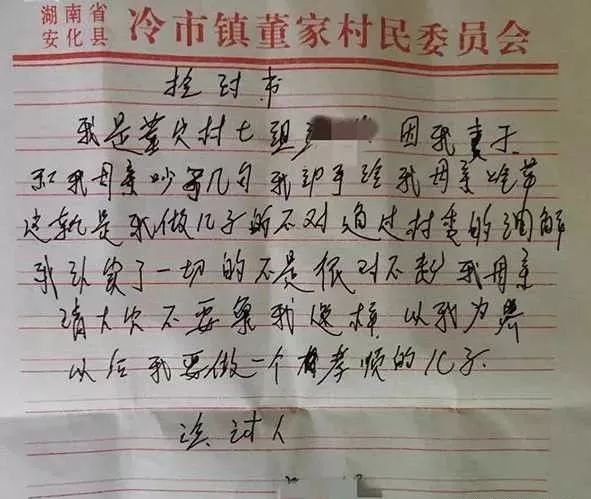 湖南省
安化县
冷市镇董家村民委员会
捡讨书
我是董家村七组 因我妻子
和我母亲吵了几句 我动手给我母亲
这就是我做儿子的不对 通过村委的调解
我认识了一切的不是 很对不起我母亲
请大家不要象我这样 以我为
以后我要做一个有孝顺的儿子.
检讨人